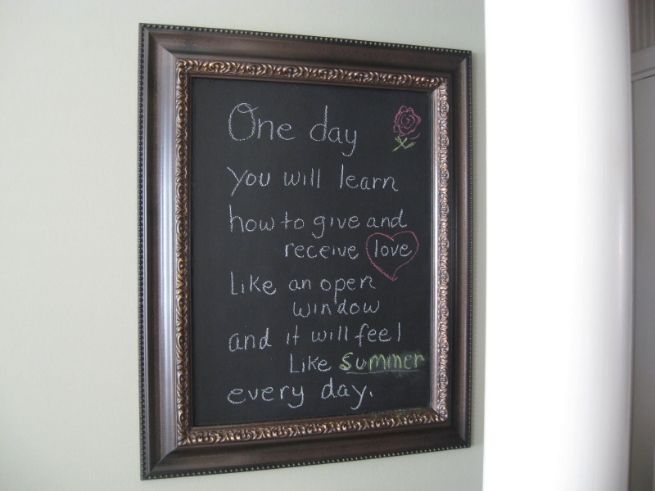 One day
you will learn
how to give and
receive love
Like an open
window
and it will feel
Like Summer
every day.